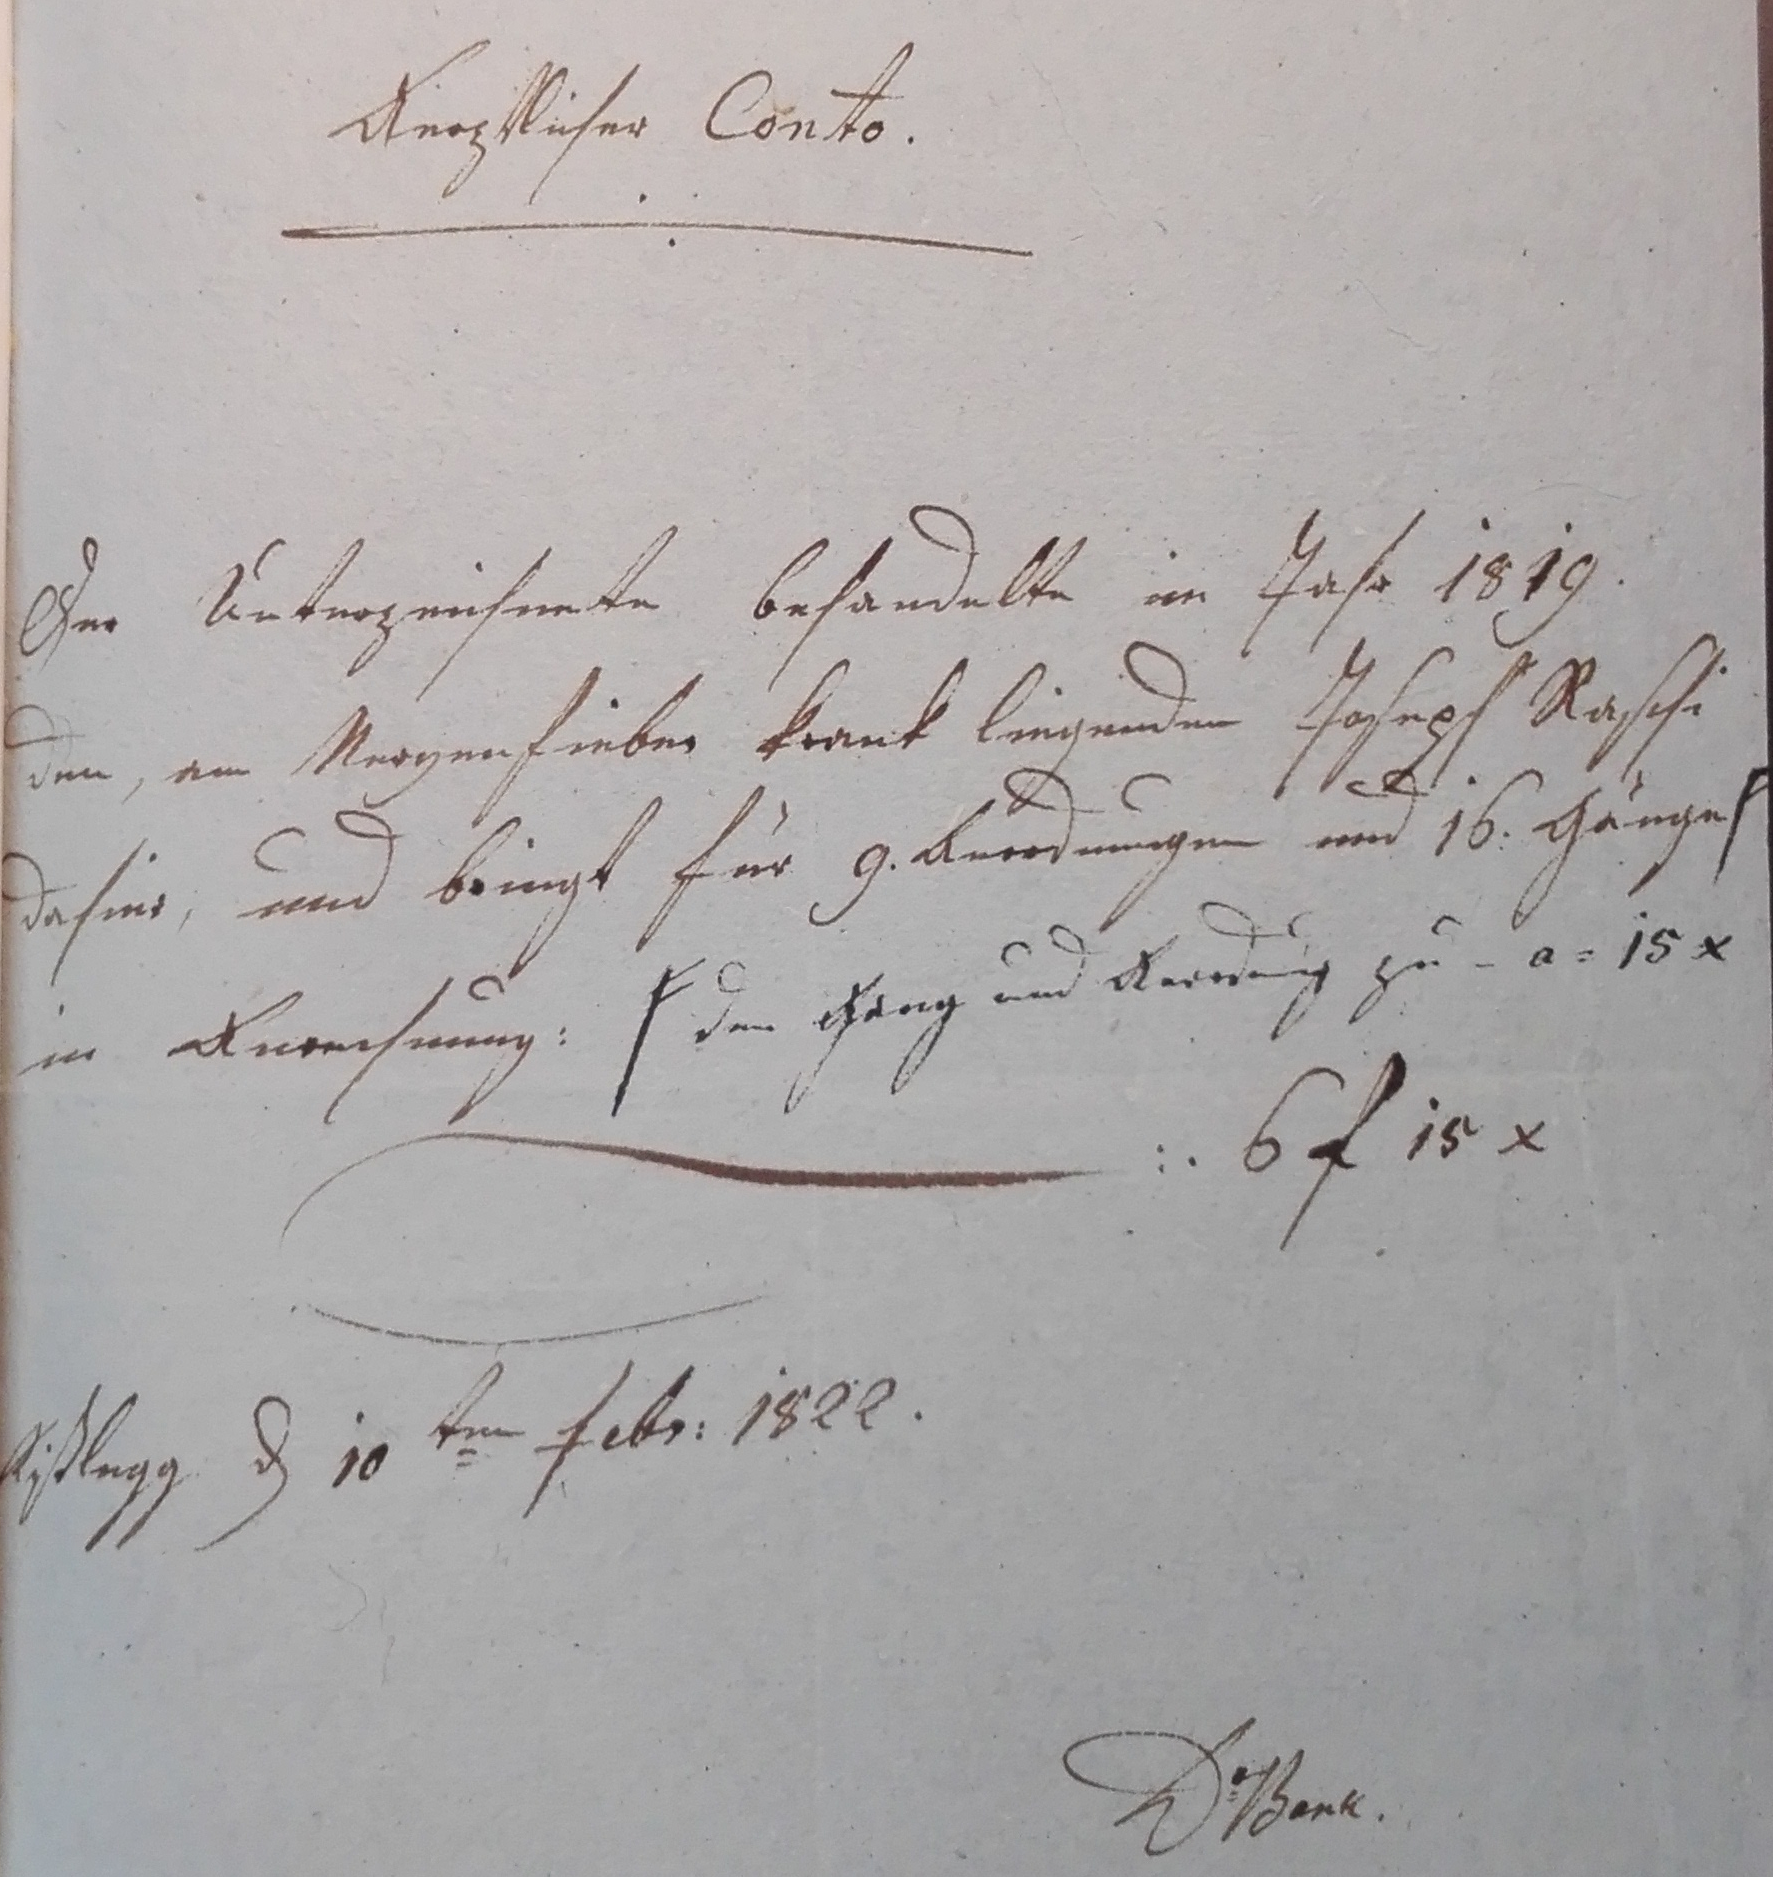 Aerztlicher Conto.
Der Unterzeichnete behandelte im Jahr 1819.
den, am Nervenfieber krank liegenden Joseph Raschi
dahier, und bringt für 9. Anordnungen und 16. Gänge
in Anrechnung: den Gang und Anordnung zu - a = 15 x
:. 6 f 15 x
Kißlegg d 10ten Febr: 1822.
Dr.